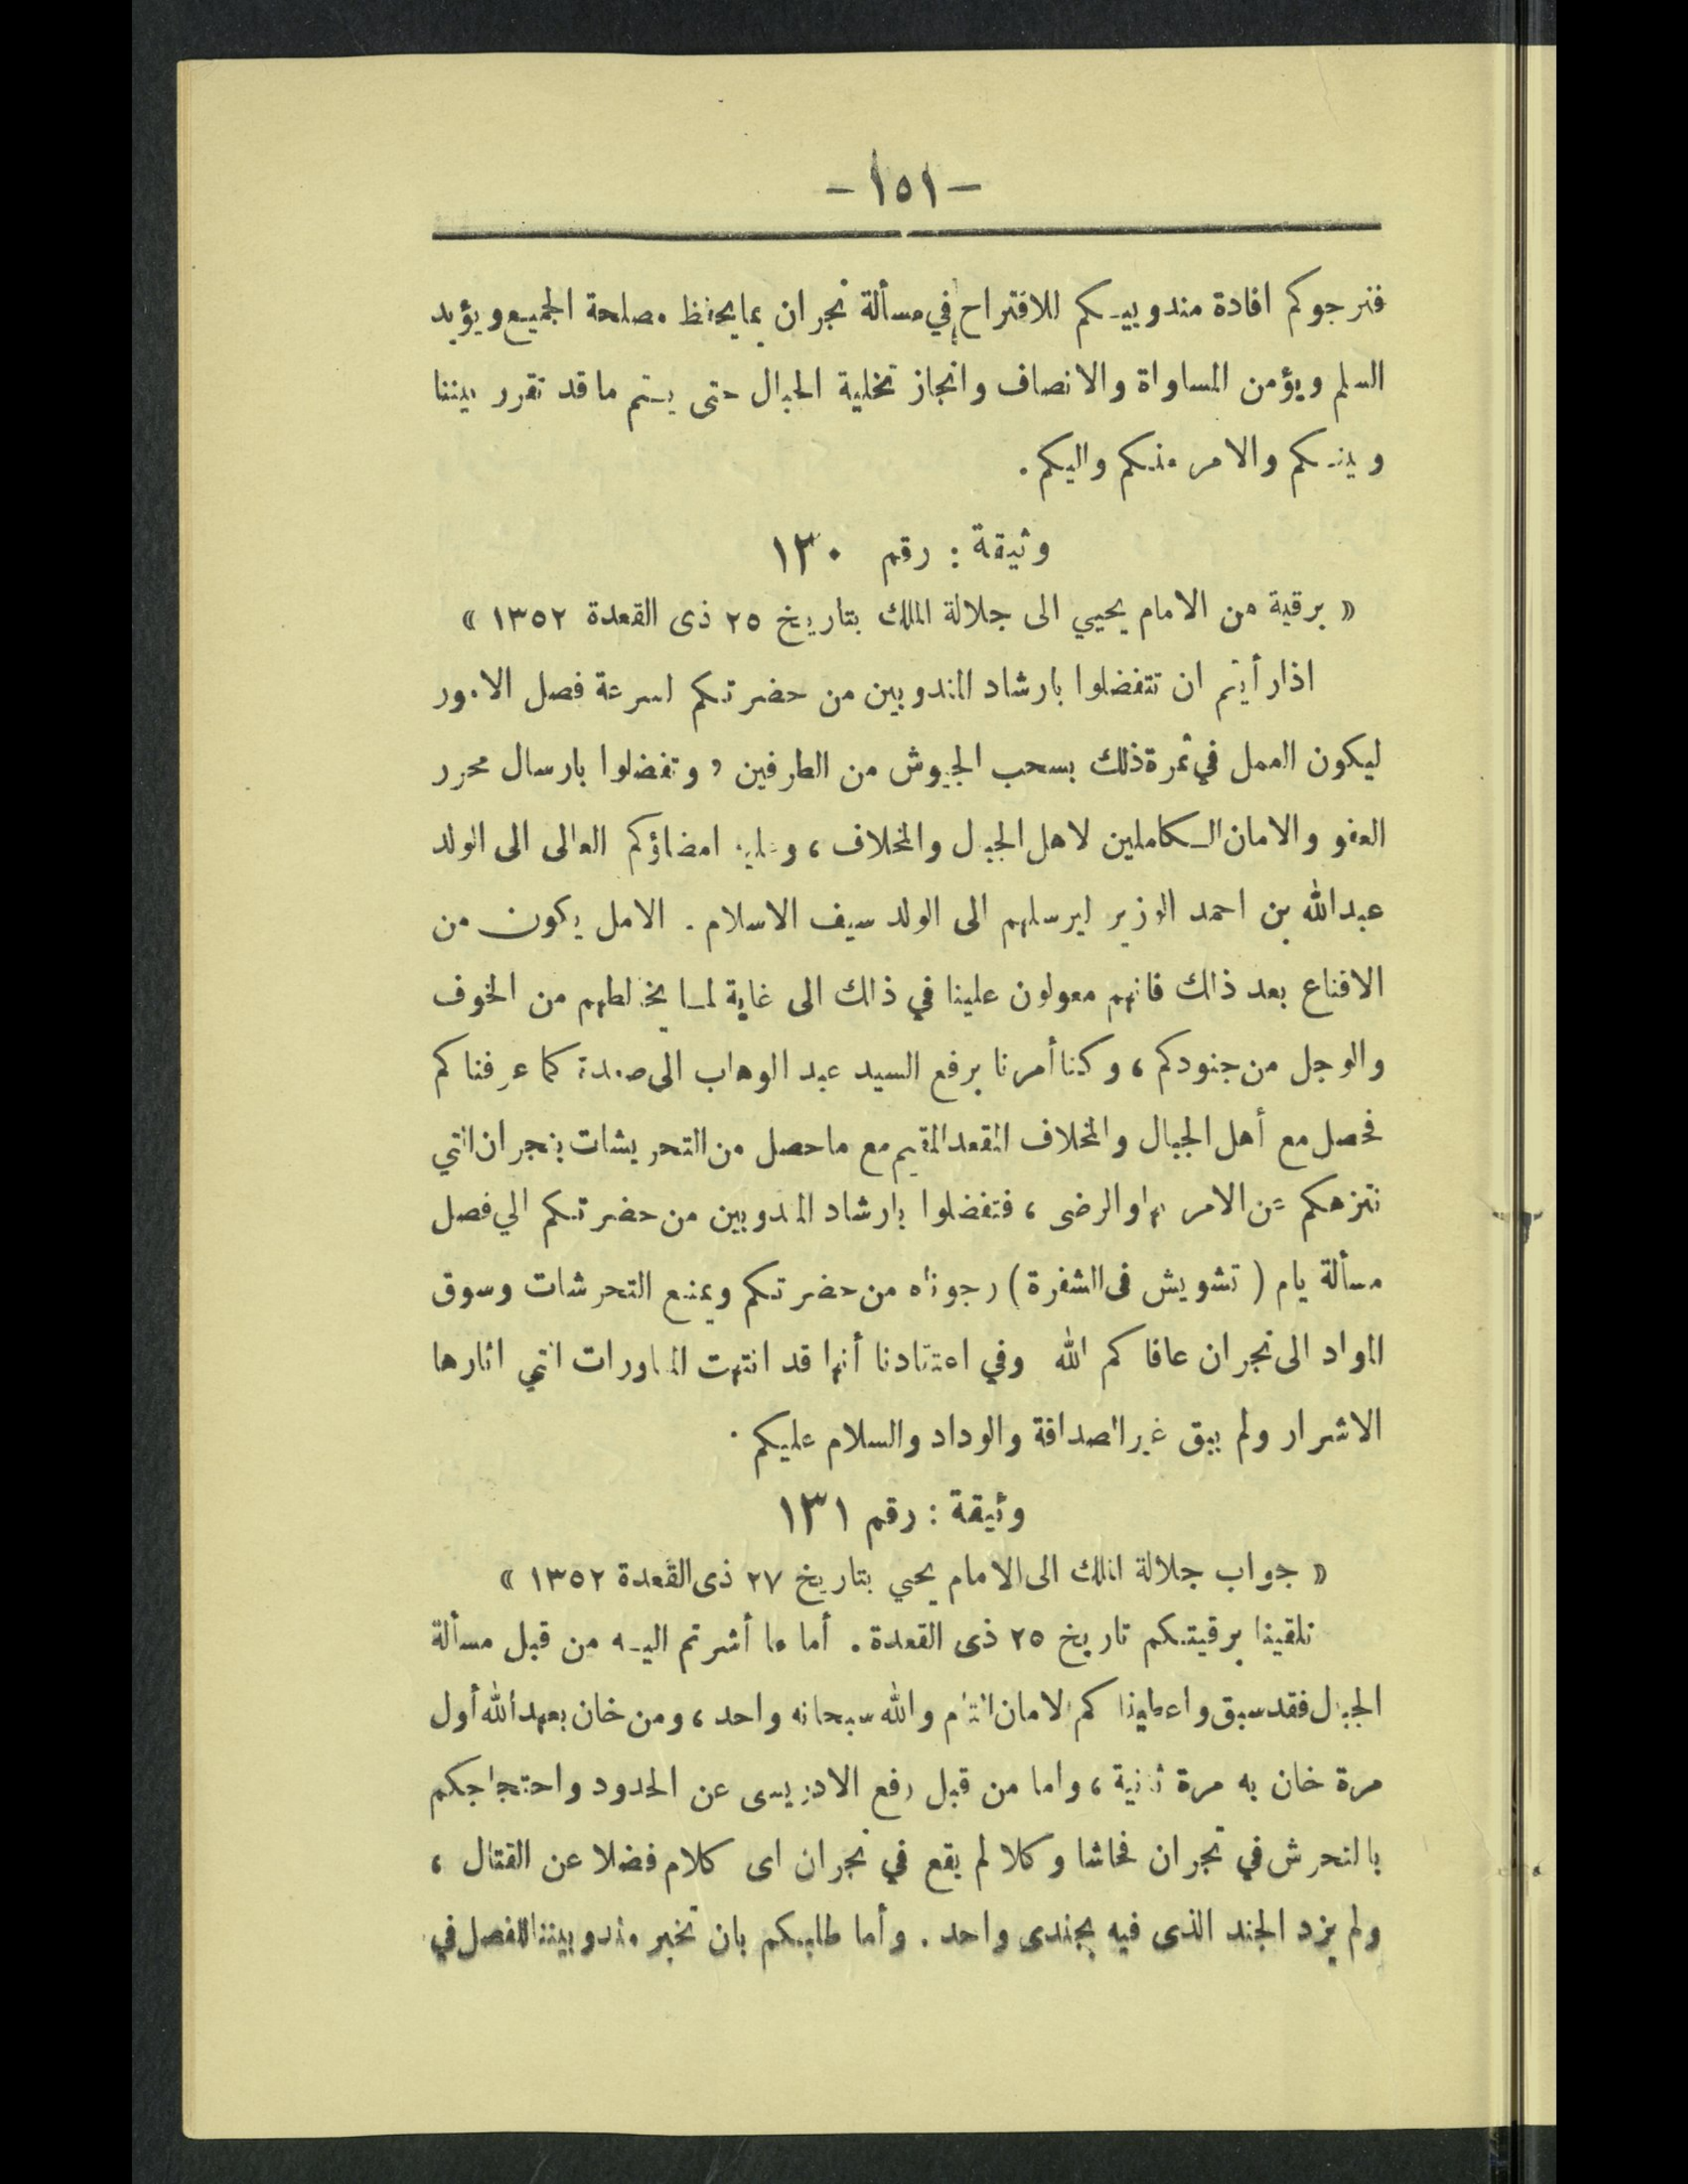 -١٥١-
فنرجوكم افادة مندوبيكم للاقتراح في مسألة نجران بما يحفظ مصلحة الجميع ويؤيد
السلم ويؤمن المساواة والانصاف وانجاز تخلية الجبال حتى يتم ما قد تقرر بيننا
وبينكم والامر منكم واليكم.
وثيقة: رقم ١٣٠
« برقية من الامام يحيي الى جلالة الملك بتاريخ ٢٥ ذى القعدة ١٣٥٢ »
اذا رأيتم ان تتفضلوا بارشاد المندوبين من حضرتكم لسرعة فصل الامور
ليكون العمل في ثمرة ذلك بسحب الجيوش من الطرفين، وتفضلوا بارسال محرر
العفو والامان الكاملين لاهل الجبال والمخلاف، وعليه امضاؤكم العالى الى الولد
عبدالله بن احمد الوزير ليرسلهم الى الولد سيف الاسلام. الامل يكون من
الاقناع بعد ذلك فانهم معولون علينا في ذلك الى غاية لما يخالطهم من الخوف
والوجل من جنودكم، وكنا أمرنا برفع السيد عبد الوهاب الى صعدة كما عرفناكم
فحصل مع أهل الجبال والمخلاف المقعد المقيم مع ما حصل من التحريشات بنجران التي
ننزهكم عن الامر بها والرضى، فتفضلوا بارشاد المندوبين من حضرتكم الي فصل
مسألة يام (تشويش فى الشفرة) رجوناه من حضرتكم وبمنع التحرشات وسوق
المواد الى نجران عافاكم الله وفي اعتقادنا أنها قد انتهت المناورات التي اثارها
الاشرار ولم يبق غير الصداقة والوداد والسلام عليكم.
وثيقة: رقم ١٣١
« جواب جلالة الملك الى الامام يحيي بتاريخ ٢٧ ذى القعدة ١٣٥٢ »
تلقينا برقيتكم تاريخ ٢٥ ذى القعدة. أما ما أشرتم اليه من قبل مسألة
الجبال فقد سبق واعطيناكم الامان التام والله سبحانه واحد، ومن خان بعهد الله أول
مرة خان به مرة ثانية، واما من قبل رفع الادريسى عن الحدود واحتجاجكم
بالتحرش في نجران فحاشا وكلا لم يقع في نجران اى كلام فضلا عن القتال،
ولم يزد الجند الذى فيه بجندى واحد. وأما طلبكم بان نخبر مندوبيننا للفصل في